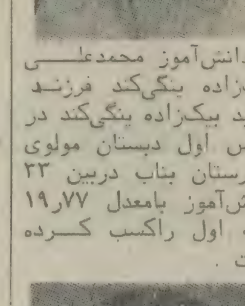 دانش‌آموز محمدعلــی
زاده ینگی‌کند فرزنــد
بیک‌زاده ینگی‌کند در
اول دبستان مولوی
بناب دربین ۳۳
بامعدل ۱۹٫۷۷
اول راکسب کــرده